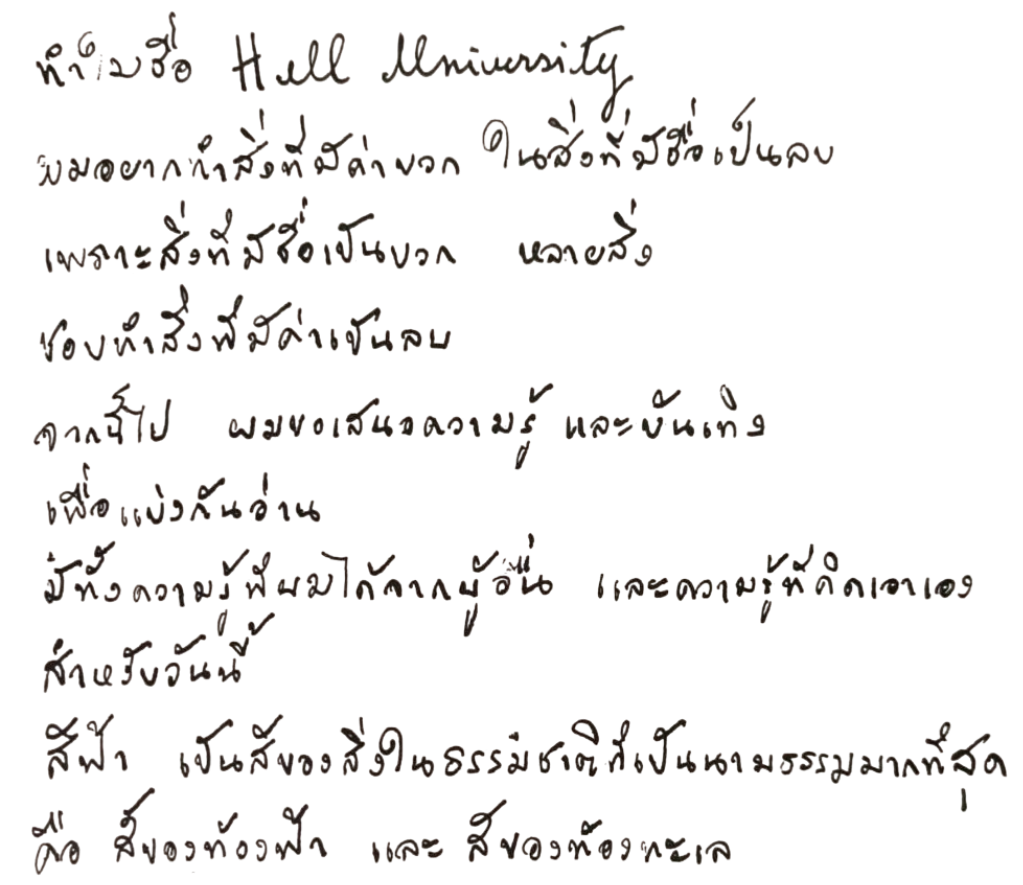 ทำไมชื่อ Hell University
ผมอยากทำสิ่งที่มีค่าบวก ในสิ่งที่มีชื่อเป็นลบ
เพราะสิ่งที่มีชื่อเป็นบวก หลายสิ่ง
ชอบทำสิ่งที่มีค่าเป็นลบ
จากนี้ไป ผมขอเสนอความรู้ และบันเทิง
เพื่อแบ่งกันอ่าน
มีทั้งความรู้ที่ผมได้จากผู้อื่น และความรู้ที่คิดเอาเอง
สำหรับวันนี้
สีฟ้า เป็นสีของสิ่งในธรรมชาติที่เป็นนามธรรมมากที่สุด
คือ สีของท้องฟ้า และ สีของท้องทะเล